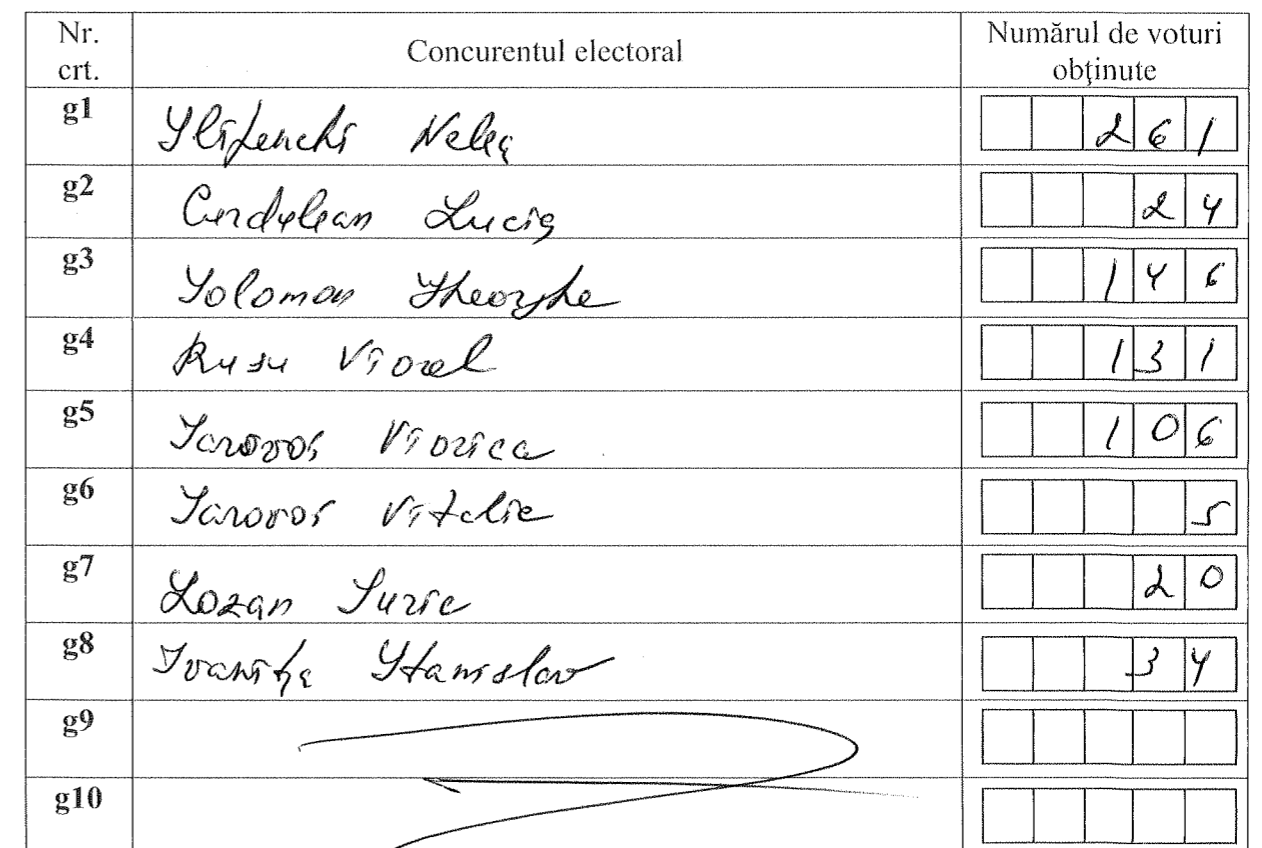 Nr. crt. Concurentul electoral Numărul de voturi obţinute
g1 Nelea 261
g2 Lucia 24
g3 Solomon Gheorghe 146
g4 Rusu Viorel 131
g5 Iarovoi Viorica 106
g6 Iarovoi Vitalie 5
g7 Lozan Iurie 20
g8 Ivaniţa Stanislav 34
g9
g10